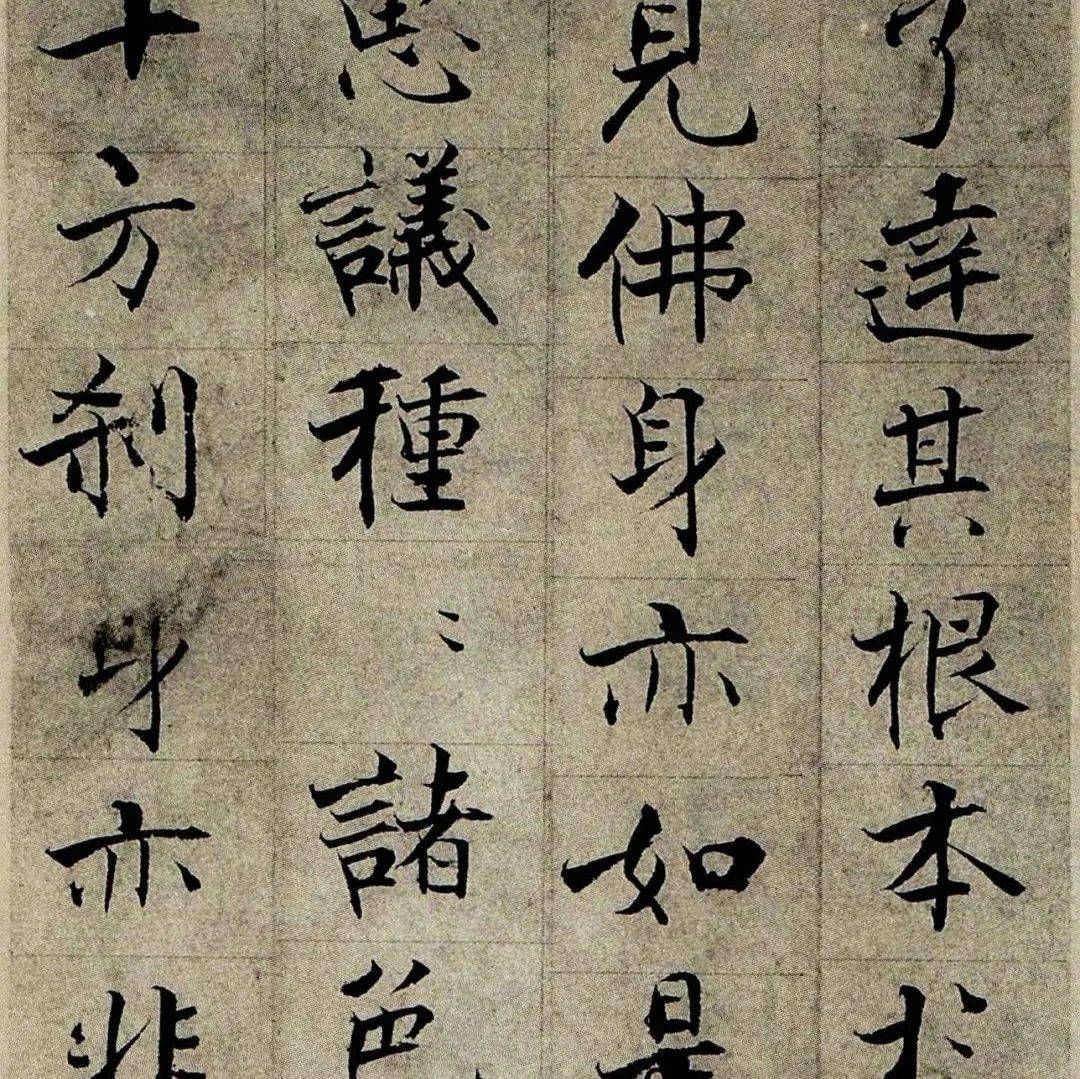 了達其根本
見佛身亦如是
思議種〻諸色
十方剎身亦非